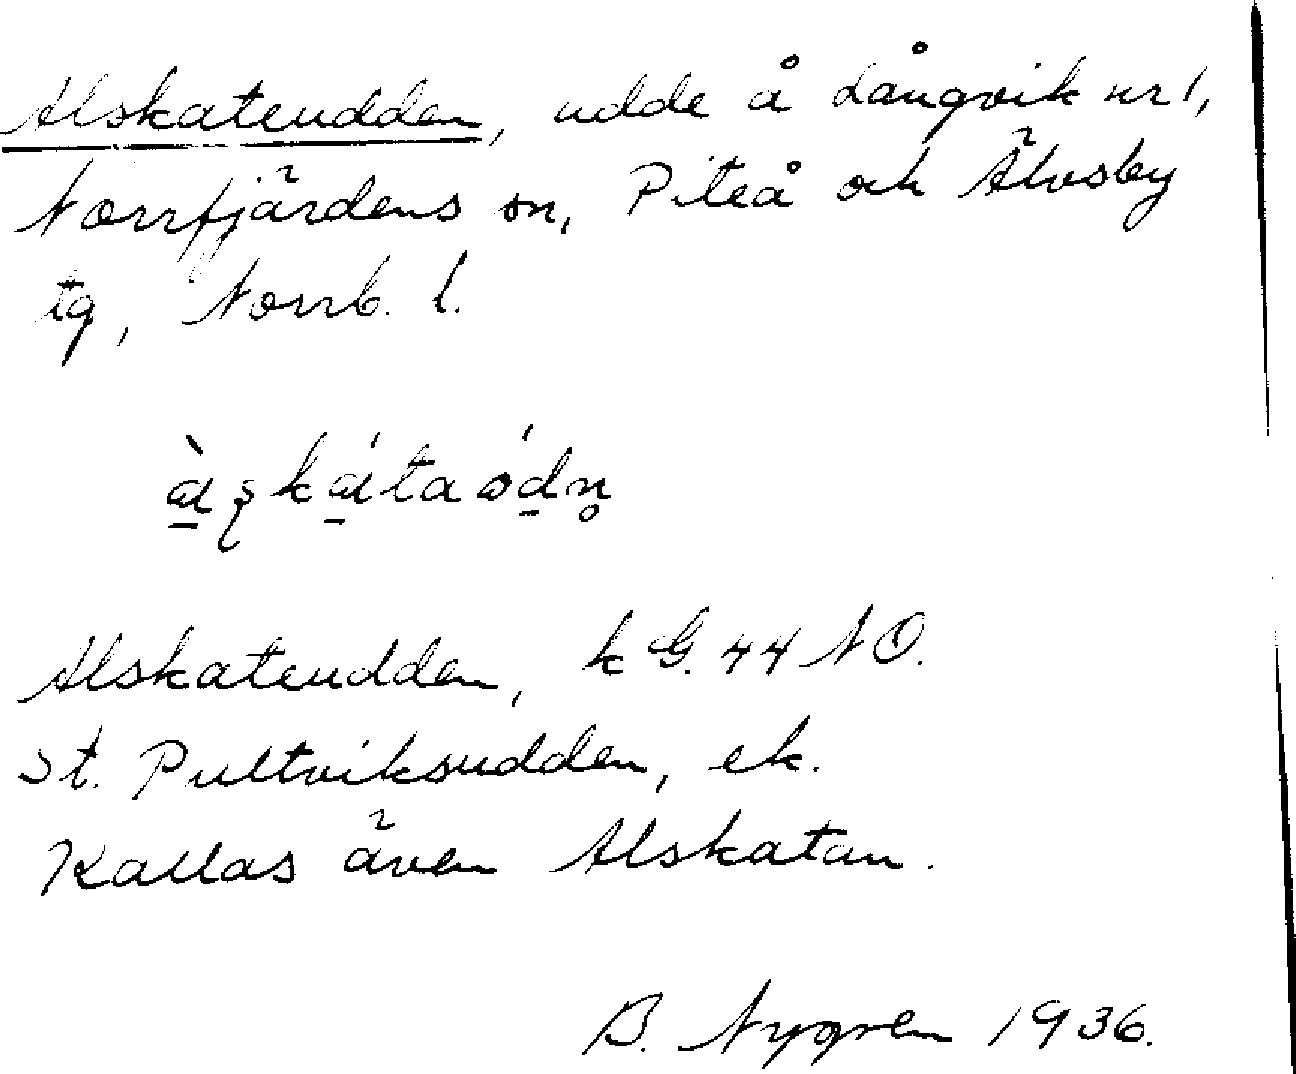 Alskateudden, udde å Långvik nr 1,
Norrfjärdens sn, Piteå och Älvsby
tg, Norrb. l.
Alskateudden, k G. 44 NO.
St. Pultviksudden, ek.
Kallas även Alskatan.
B. Nygren 1936.